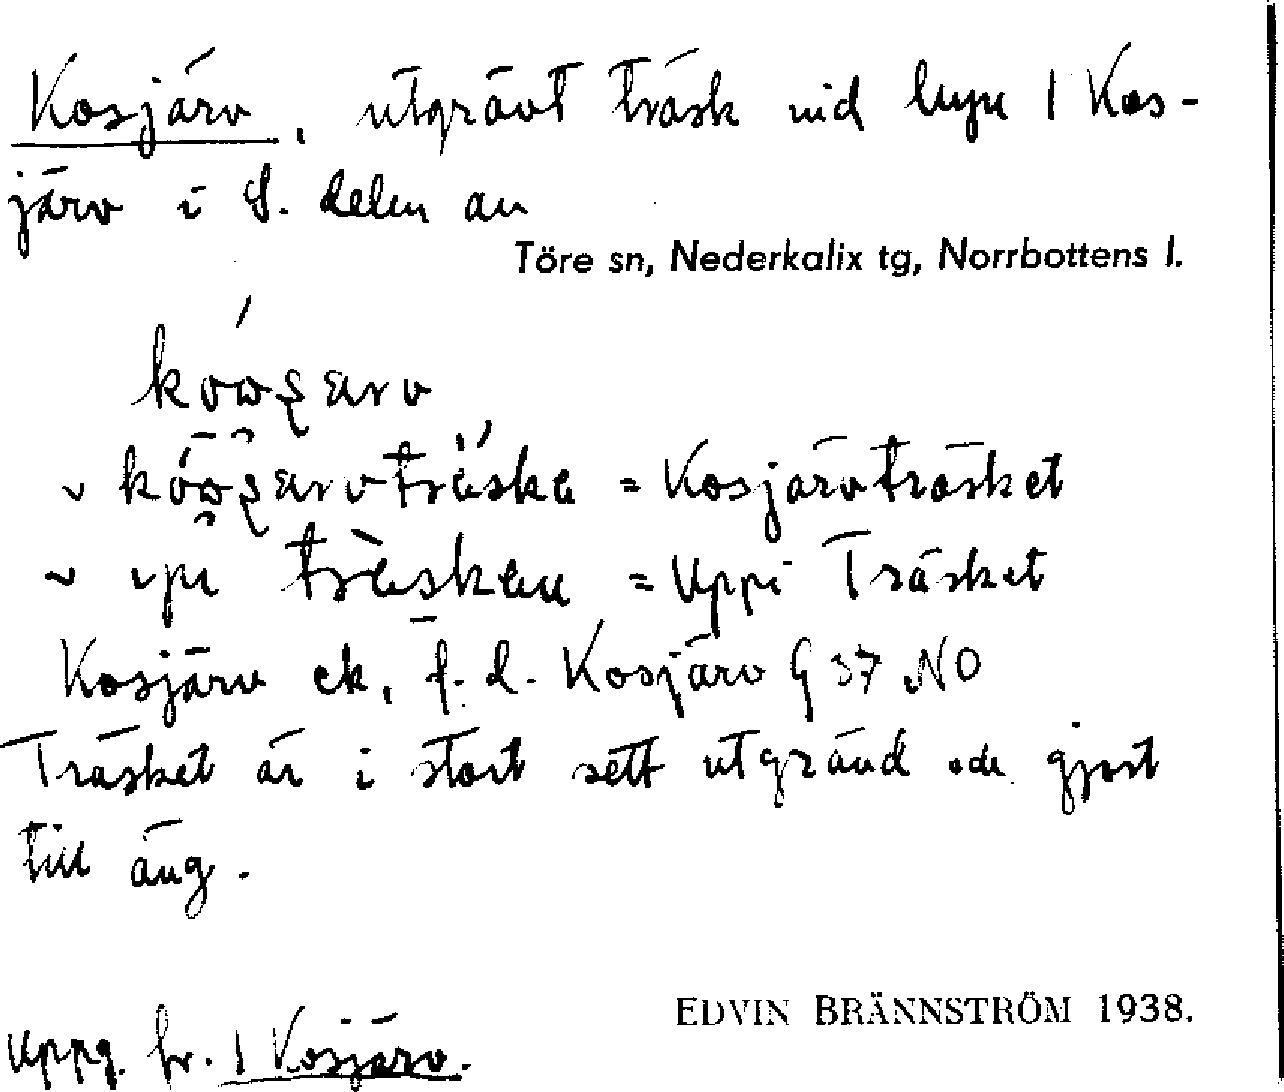 Kosjärv, utgrävt träsk vid byn 1 Kos-
järv i S. delen av
Töre sn, Nederkalix tg, Norrbottens l.
~ = Kosjärvträsket
~ = Uppi Träsket
Kosjärv ek, f. d. Kosjärv G 37 NO
Träsket är i stort sett utgrävd och gjort
till äng.
EDVIN BRÄNNSTRÖM 1938.
Uppg. fr. 1 Kosjärv.